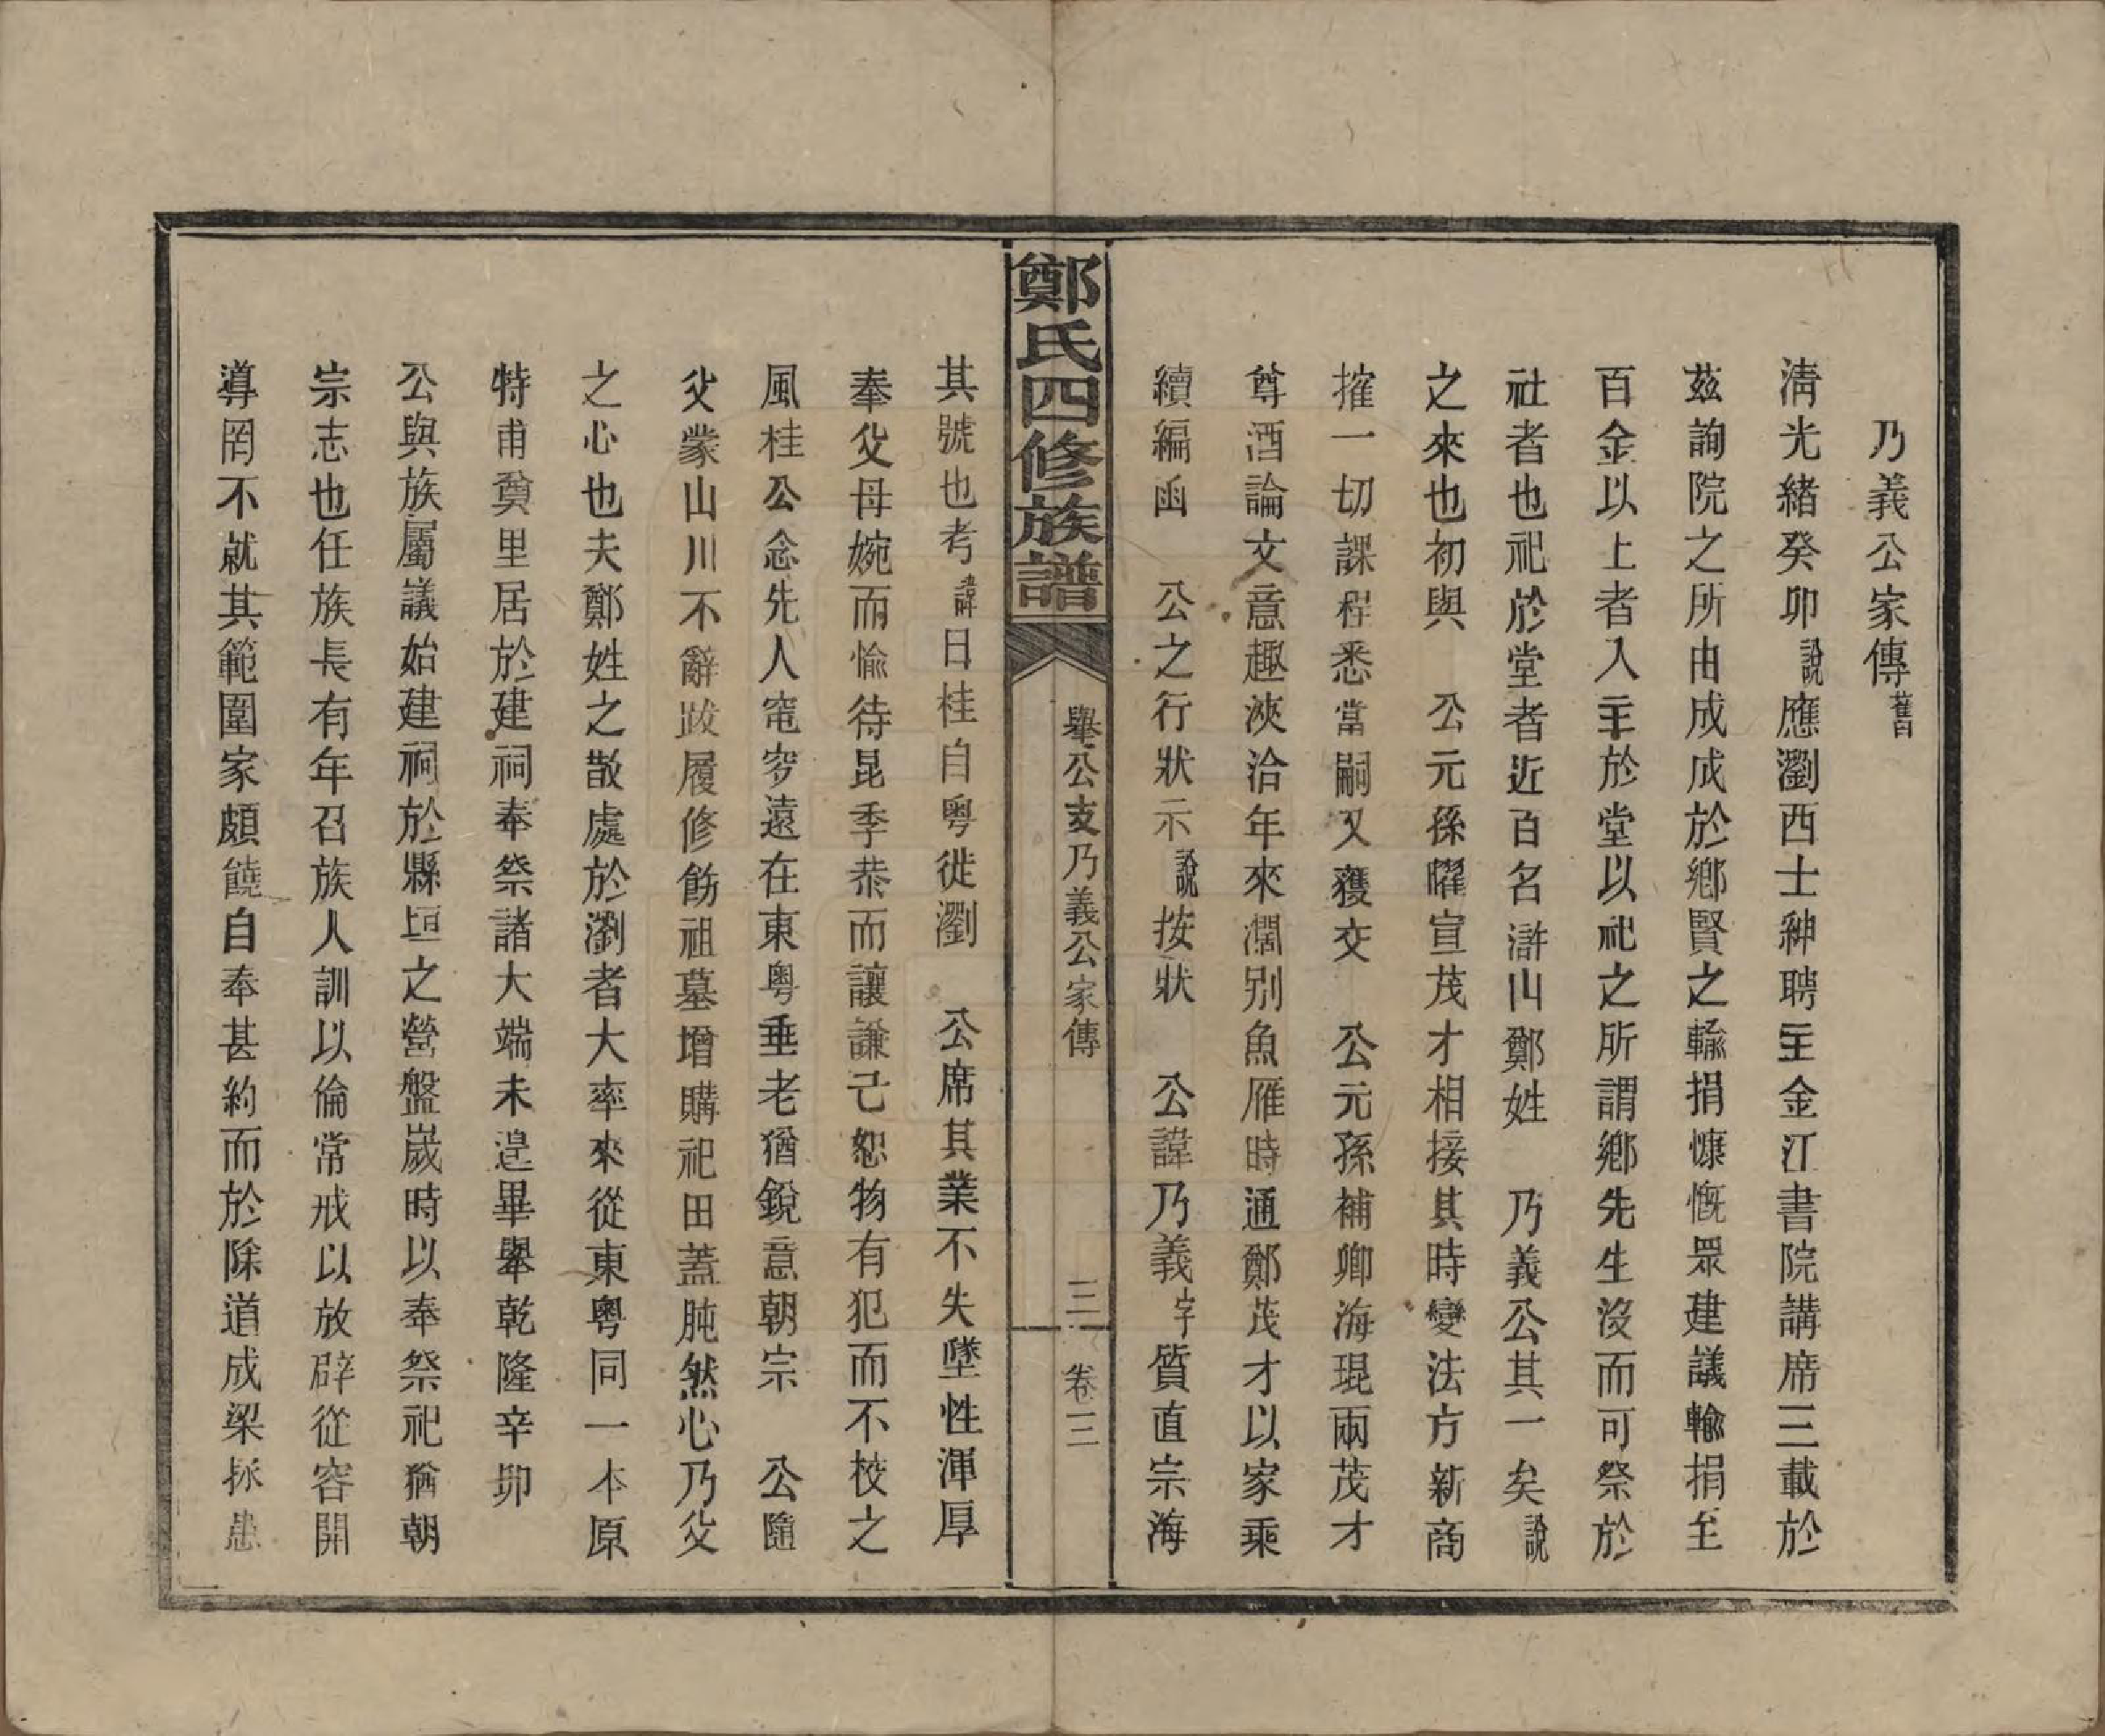 乃義公家傳舊
淸光緒癸卯說應瀏西士紳聘主金江書院講席三載於
茲詢院之所由成成於鄉賢之輸捐慷慨眾建議輸捐至
百金以上者入主於堂以祀之所謂鄉先生沒而可祭於
社者也祀於堂者近百名滸山鄭姓 乃義公其一矣說
之來也初與 公元孫曜宣茂才相接其時變法方新商
搉一切課程悉當嗣又獲交 公元孫補卿海琨兩茂才
尊酒論文意趣浹洽年來濶别魚雁時通鄭茂才以家乘
續編函 公之行狀示說按狀 公諱乃義字質直宗海
鄭氏四修族譜
舉公支乃義公家傳
三
卷三
其號也考諱日桂自粤徙瀏 公席其業不失墜性渾厚
奉父母婉而愉待昆季恭而讓謙己恕物有犯而不校之
風桂公念先人窀穸遠在東粤垂老猶銳意朝宗 公隨
父蒙山川不辭跋履修飭祖墓增購祀田蓋肫然心乃父
之心也夫鄭姓之散處於瀏者大率來從東粤同一本原
特甫奠里居於建祠奉祭諸大端未遑畢舉乾隆辛卯
公與族屬議始建祠於縣垣之營盤嵗時以奉祭祀猶朝
宗志也任族長有年召族人訓以倫常戒以放辟從容開
導罔不就其範圍家頗饒自奉甚約而於除道成梁拯患